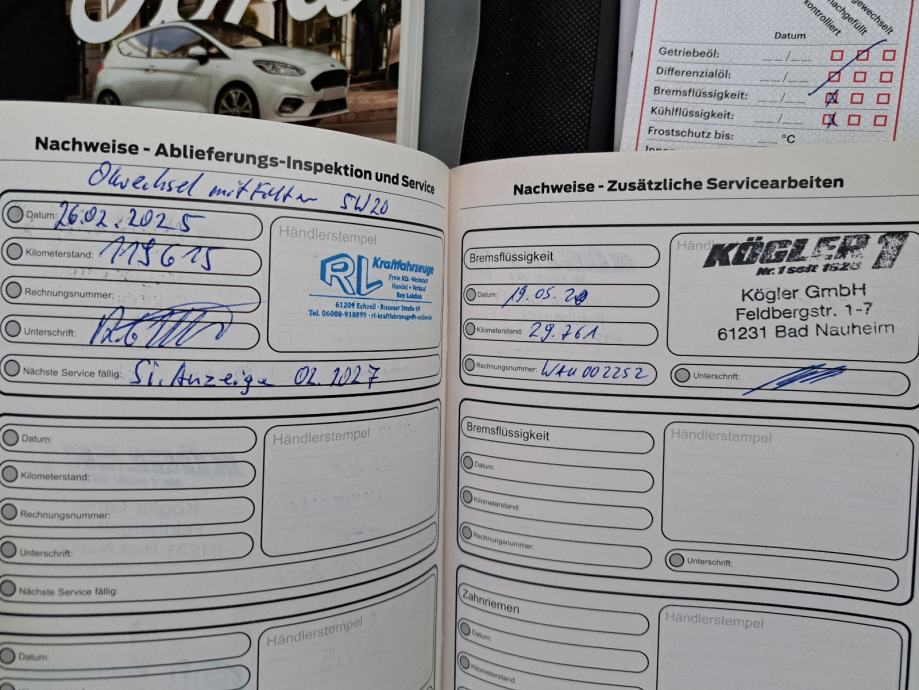 Ford
gewechselt
nachgefüllt
kontrolliert
Datum
Getriebeöl: __/__
Differenzialöl: __/__
Bremsflüssigkeit: __/__
Kühlflüssigkeit: __/__
Frostschutz bis: __ °C
Nachweise - Ablieferungs-Inspektion und Service
Ölwechsel mit Filter 5W20
Datum: 26.02.2025
Kilometerstand: 119615
Rechnungsnummer:
Unterschrift:
Nächste Service fällig: Si. Anzeige 02.2027
Händlerstempel
RL Kraftfahrzeuge
Freie Kfz.-Werkstatt
Handel + Verkauf
61209 Echzell
Tel. 06008-918899 · rl-kraftfahrzeuge@t-online.de
Datum:
Kilometerstand:
Rechnungsnummer:
Unterschrift:
Nächste Service fällig:
Händlerstempel
Datum:
Händlerstempel
Nachweise - Zusätzliche Servicearbeiten
Bremsflüssigkeit
Datum: 19.05.20
Kilometerstand: 29.761
Rechnungsnummer: WAU002252
KÖGLER 1
Nr. 1 seit 1523
Kögler GmbH
Feldbergstr. 1-7
61231 Bad Nauheim
Unterschrift:
Bremsflüssigkeit
Datum:
Kilometerstand:
Rechnungsnummer:
Händlerstempel
Unterschrift:
Zahnriemen
Datum:
Kilometerstand:
Händlerstempel